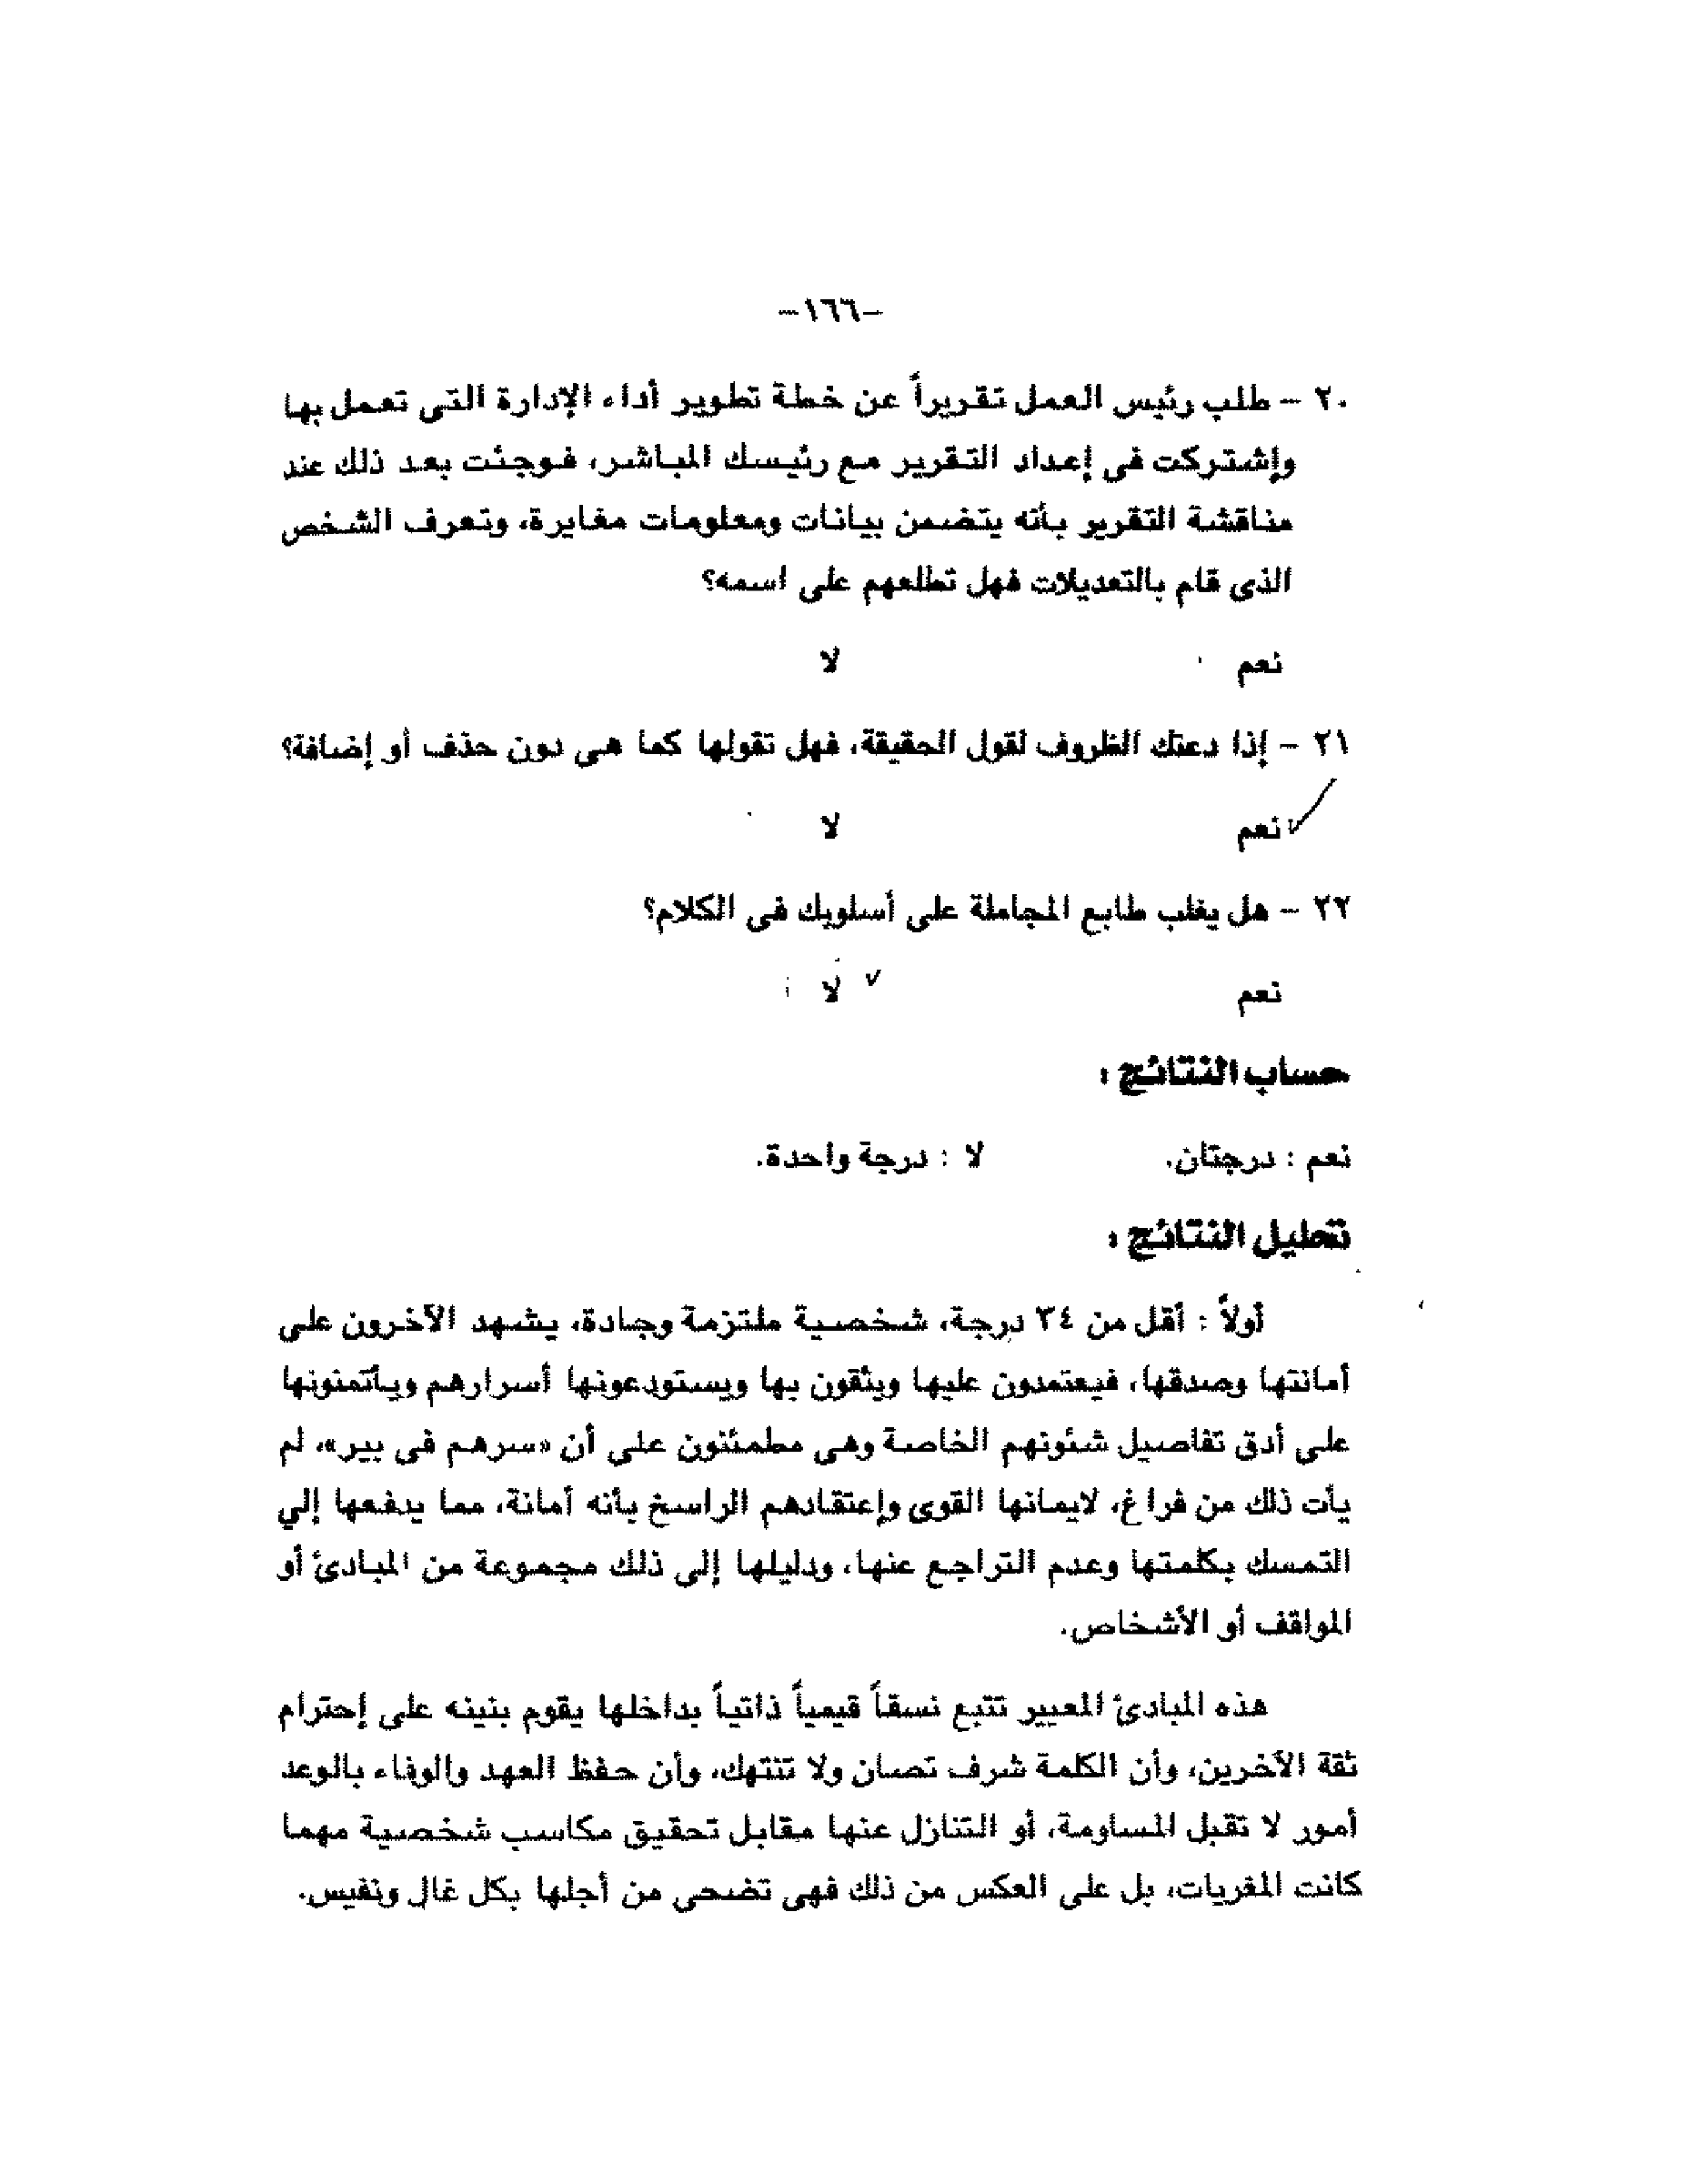 -١٦٦-
٢٠ - طلب رئيس العمل تقريراً عن خطة تطوير أداء الإدارة التى تعمل بها
وإشتركت فى إعداد التقرير مع رئيسك المباشر، فوجئت بعد ذلك عند
مناقشة التقرير بأنه يتضمن بيانات ومعلومات مغايرة، وتعرف الشخص
الذى قام بالتعديلات فهل تطلعهم على اسمه؟
نعم لا
٢١ - إذا دعتك الظروف لقول الحقيقة، فهل تقولها كما هى دون حذف أو إضافة؟
✓ نعم لا
٢٢ - هل يغلب طابع المجاملة على أسلوبك فى الكلام؟
نعم ✓ لا
حساب النتائج :
نعم : درجتان. لا : درجة واحدة.
تحليل النتائج :
أولاً : أقل من ٣٤ درجة، شخصية ملتزمة وجادة، يشهد الآخرون على
أمانتها وصدقها، فيعتمدون عليها ويثقون بها ويستودعونها أسرارهم ويأتمنونها
على أدق تفاصيل شئونهم الخاصة وهى مطمئنون على أن «سرهم فى بير»، لم
يأت ذلك من فراغ، لايمانها القوى وإعتقادهم الراسخ بأنه أمانة، مما يدفعها إلي
التمسك بكلمتها وعدم التراجع عنها، ودليلها إلى ذلك مجموعة من المبادئ أو
المواقف أو الأشخاص.
هذه المبادئ المعيير تتبع نسقاً قيمياً ذاتياً بداخلها يقوم بنينه على إحترام
ثقة الآخرين، وأن الكلمة شرف تصان ولا تنتهك، وأن حفظ العهد والوفاء بالوعد
أمور لا تقبل المساومة، أو التنازل عنها مقابل تحقيق مكاسب شخصية مهما
كانت المغريات، بل على العكس من ذلك فهى تضحى من أجلها بكل غال ونفيس.